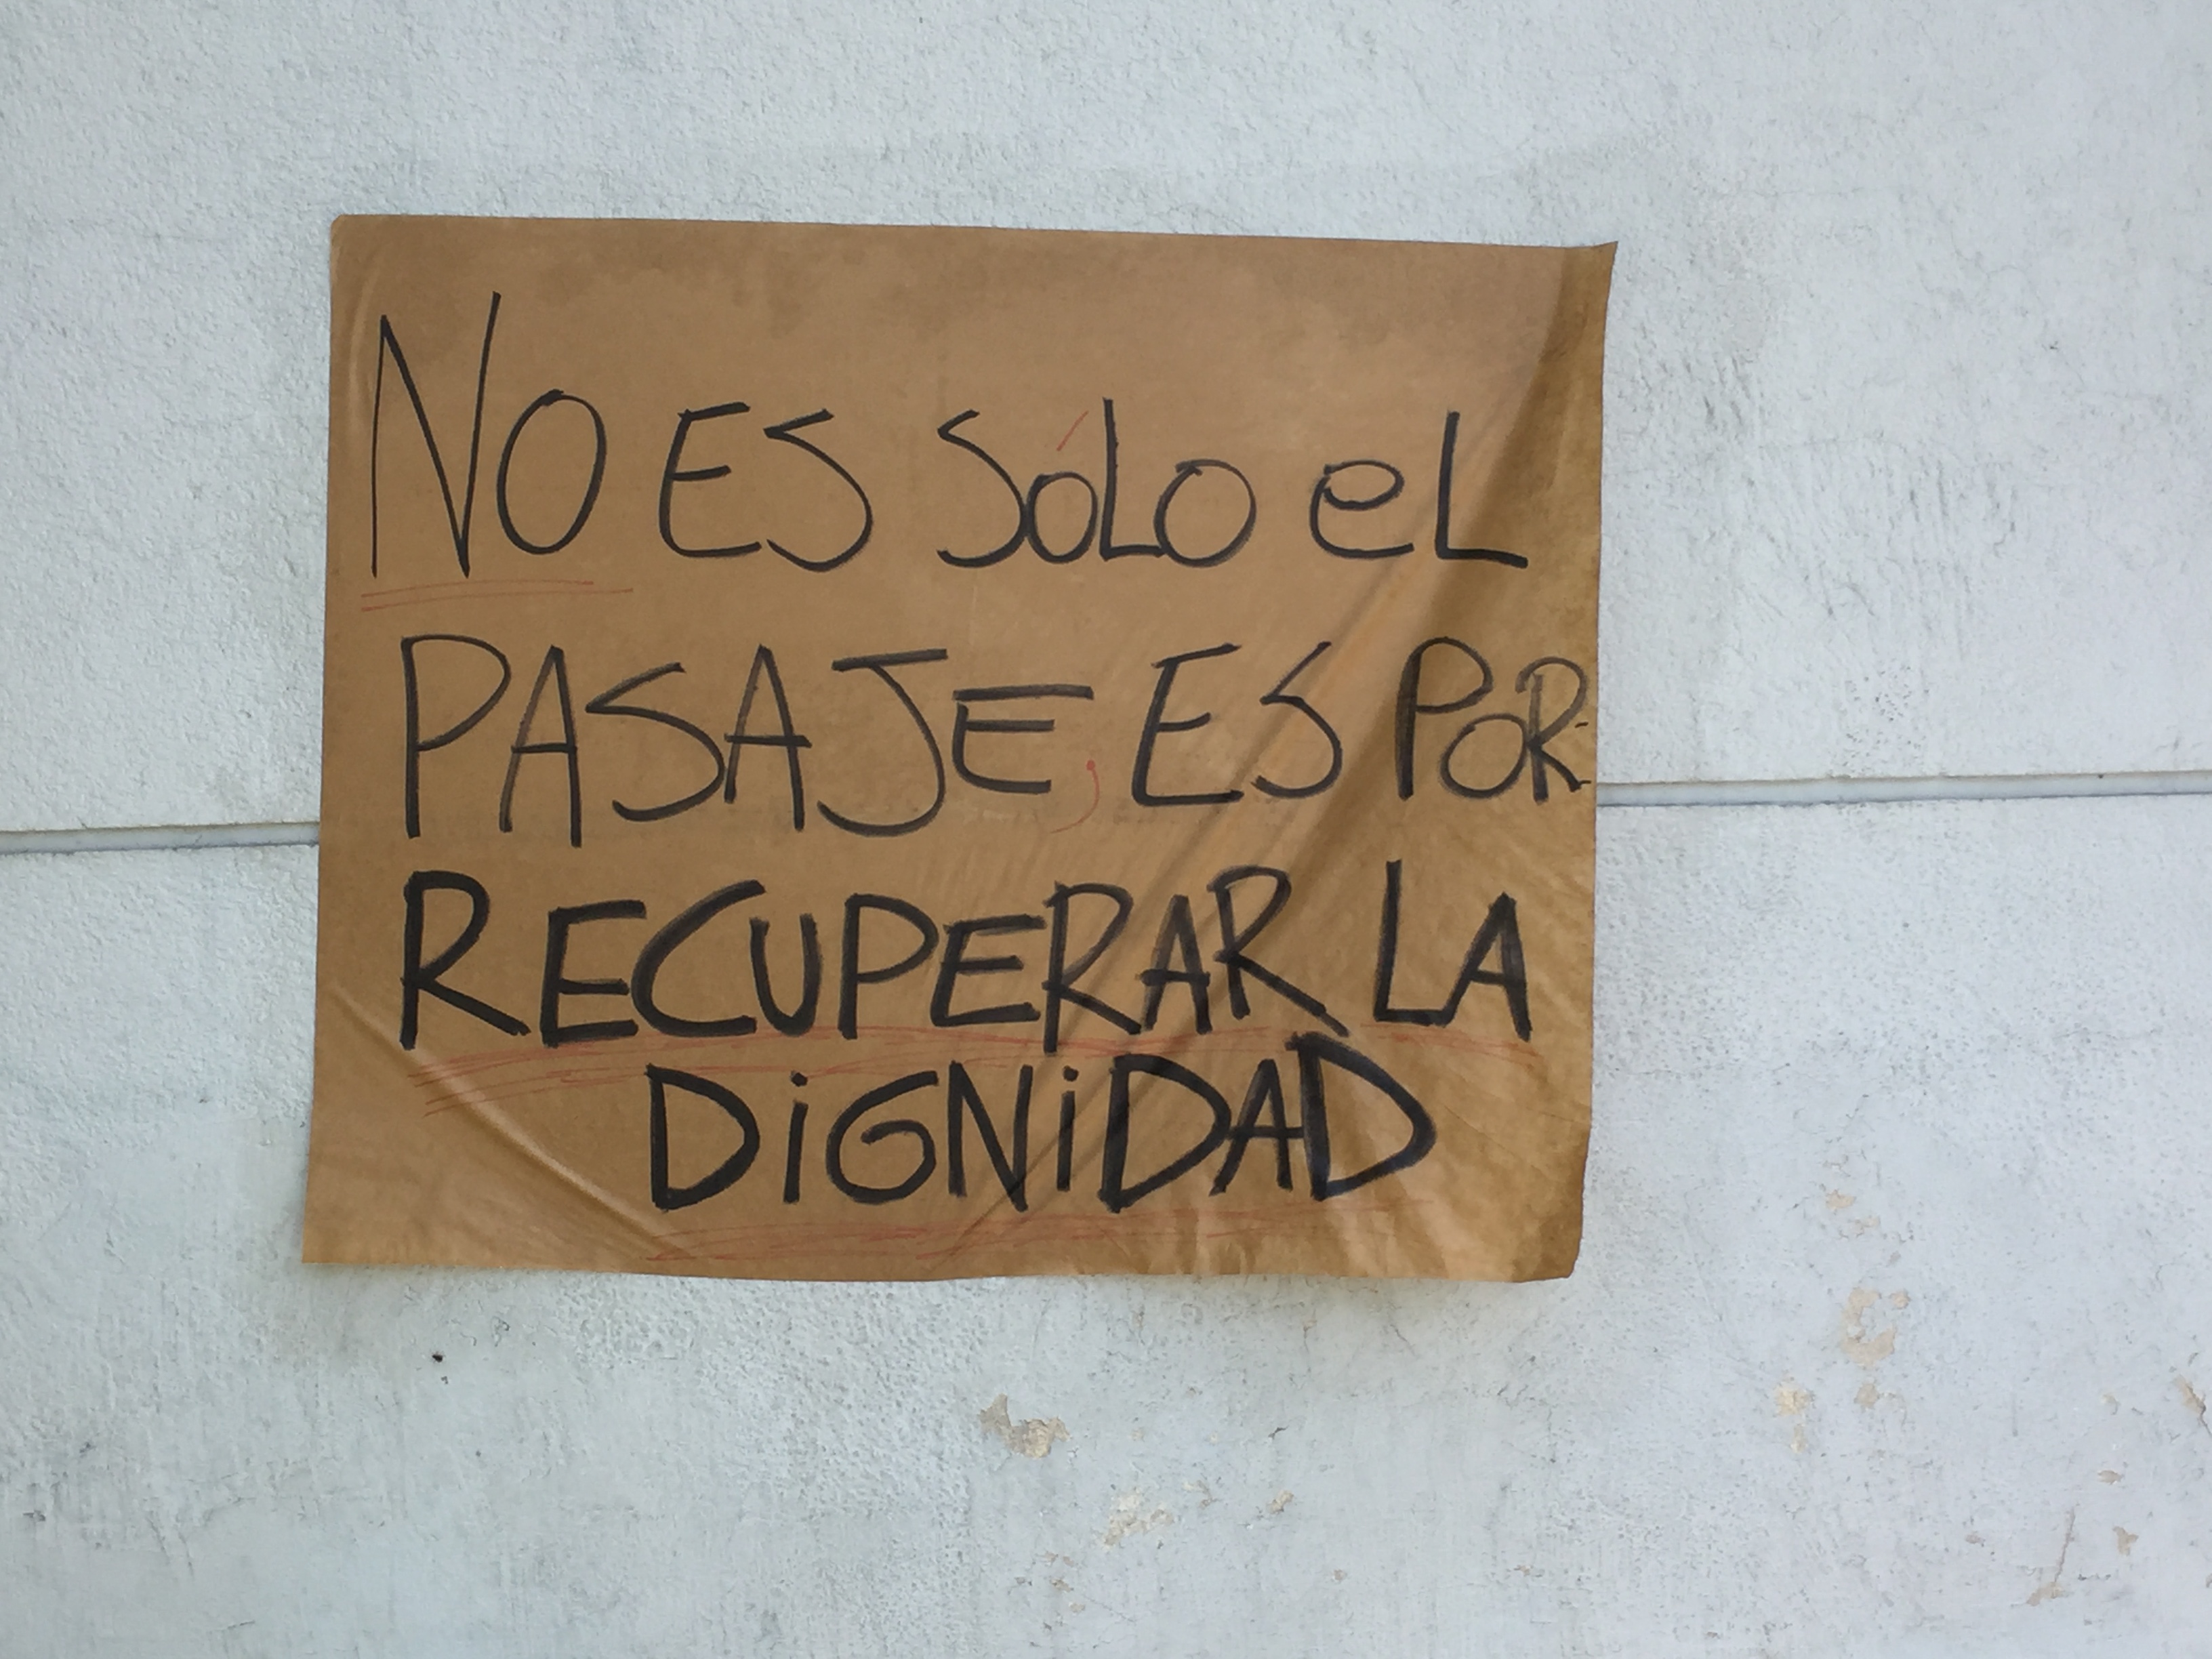 NO ES SÓLO eL
PASAJE, ES POR
RECUPERAR LA
DiGNiDAD